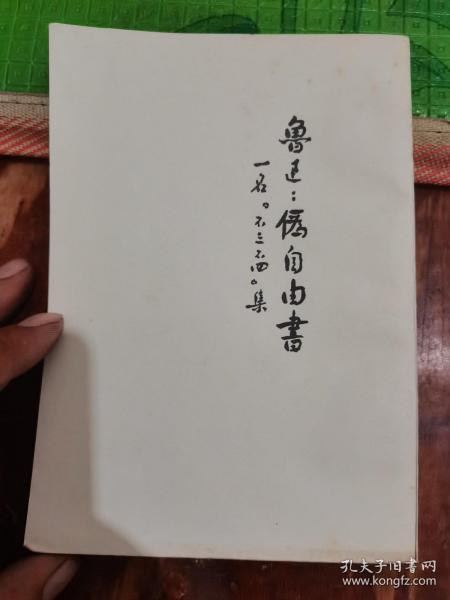 魯迅：偽自由書
一名。不三不四。集
孔夫子旧书网
www.kongfz.com